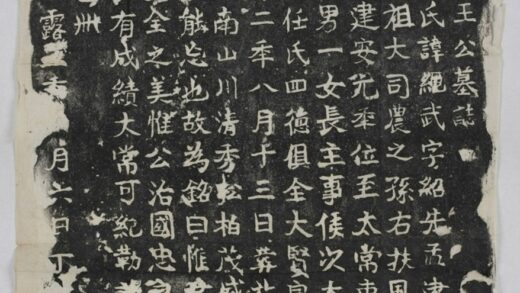 王公墓誌
氏諱繩武字紹先孟津
祖大司農之孫右扶風
建安元年位至太常
男一女長主事侯次
任氏四德俱全大賢
二年八月十三日葬北
南山川清秀松柏茂盛
能忘也故為銘曰惟
全之美惟公治國忠
有成績大常可紀勒
州
露 月六日丁